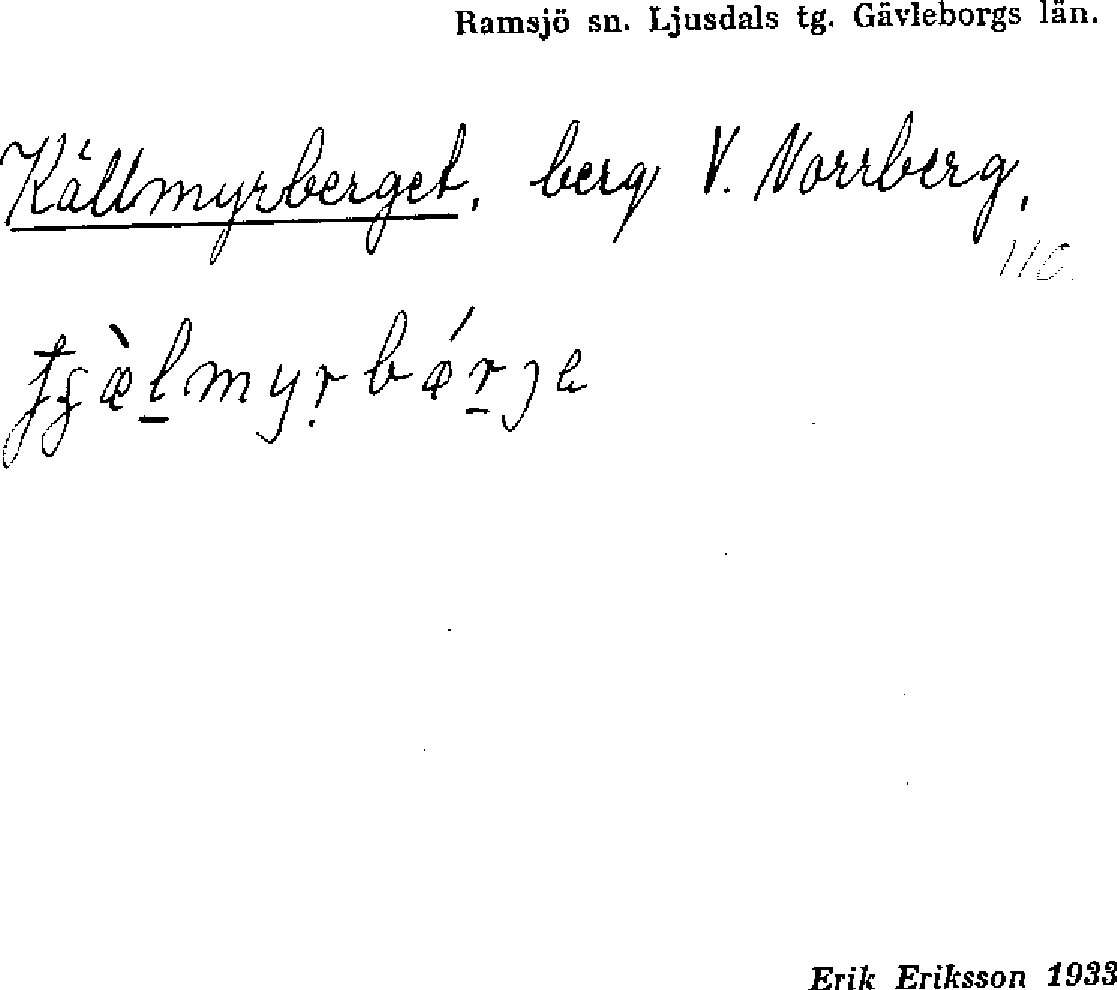 Ramsjö sn. Ljusdals tg. Gävleborgs län.
Källmyrberget, berg V. Norrberg,
110.
Erik Eriksson 1933